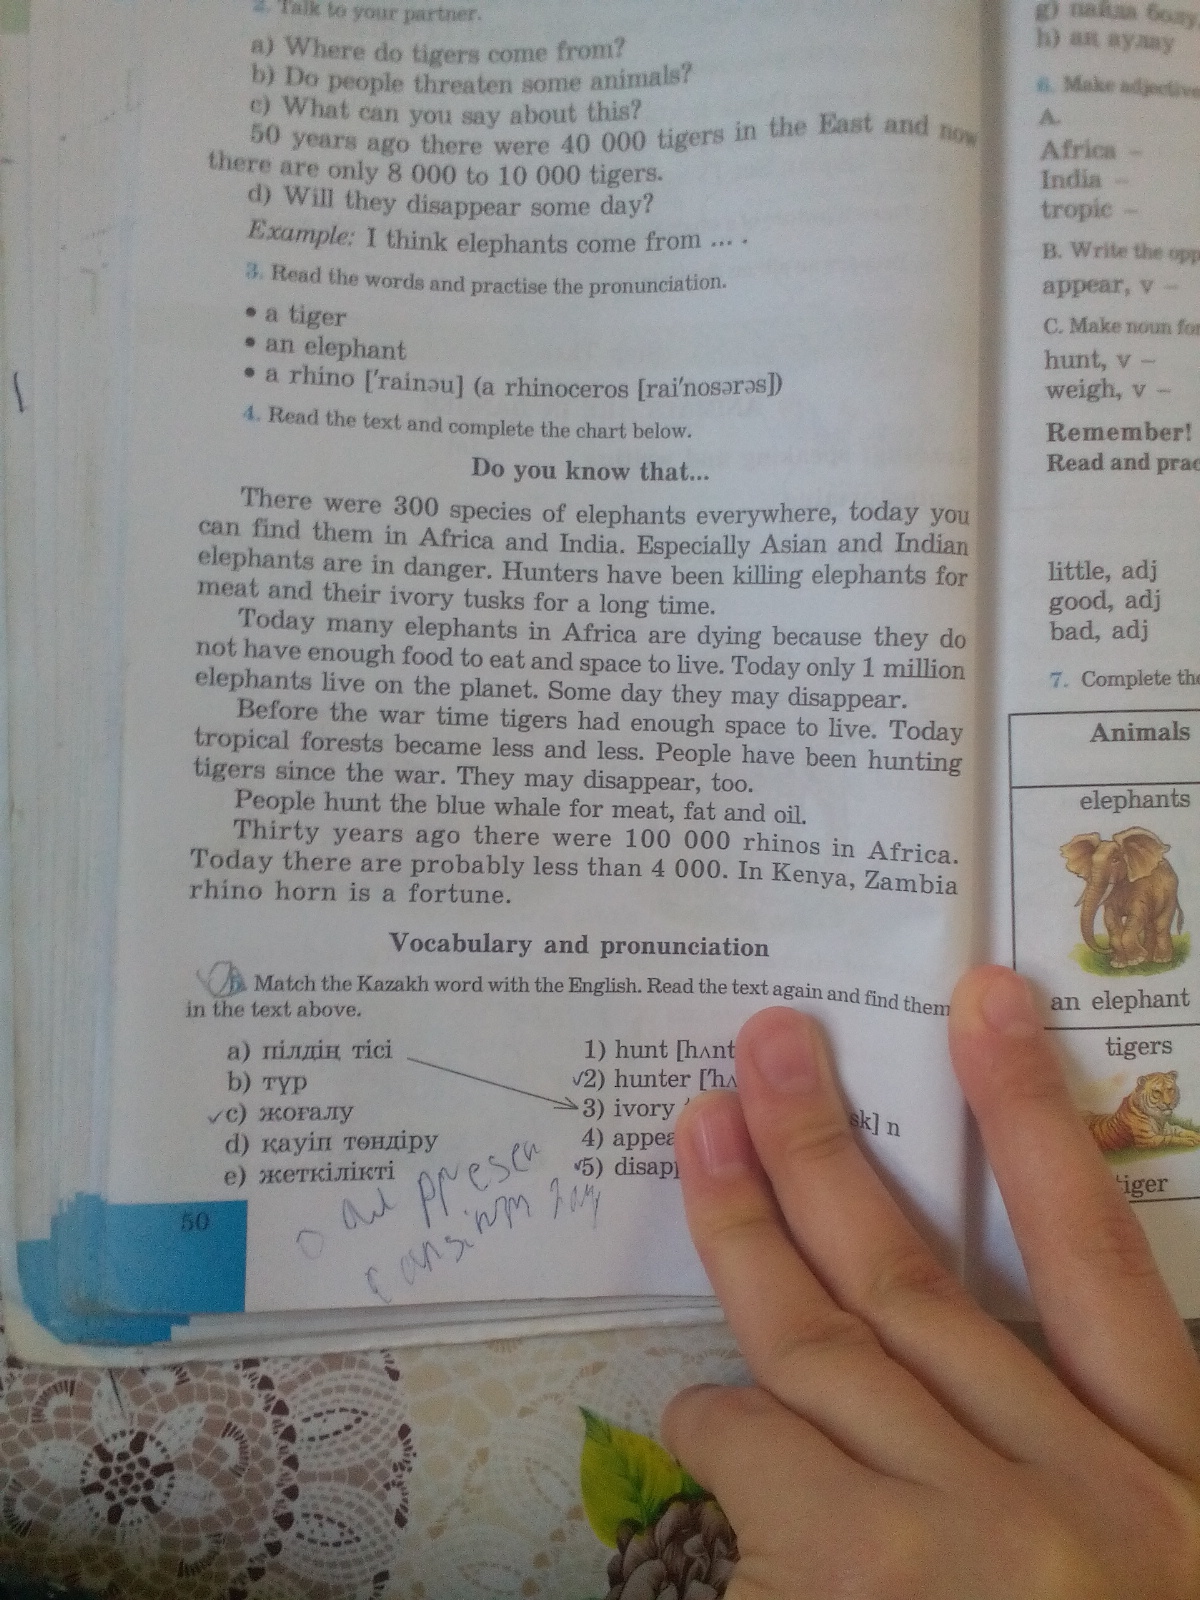 2. Talk to your partner.
a) Where do tigers come from?
b) Do people threaten some animals?
c) What can you say about this?
50 years ago there were 40 000 tigers in the East and now
there are only 8 000 to 10 000 tigers.
d) Will they disappear some day?
Example: I think elephants come from ... .
3. Read the words and practise the pronunciation.
• a tiger
• an elephant
• a rhino ['rainəu] (a rhinoceros [rai'nosərəs])
4. Read the text and complete the chart below.
Do you know that...
There were 300 species of elephants everywhere, today you
can find them in Africa and India. Especially Asian and Indian
elephants are in danger. Hunters have been killing elephants for
meat and their ivory tusks for a long time.
Today many elephants in Africa are dying because they do
not have enough food to eat and space to live. Today only 1 million
elephants live on the planet. Some day they may disappear.
Before the war time tigers had enough space to live. Today
tropical forests became less and less. People have been hunting
tigers since the war. They may disappear, too.
People hunt the blue whale for meat, fat and oil.
Thirty years ago there were 100 000 rhinos in Africa.
Today there are probably less than 4 000. In Kenya, Zambia
rhino horn is a fortune.
Vocabulary and pronunciation
Match the Kazakh word with the English. Read the text again and find them
in the text above.
a) пілдің тісі
b) түр
c) жоғалу
d) қауіп төндіру
e) жеткілікті
1) hunt [hʌnt
2) hunter ['hʌ
3) ivory
sk] n
4) appea
5) disapp
50
g) пайда болу
h) аң аулау
6. Make adjective
A.
Africa –
India –
tropic –
B. Write the opp
appear, v –
C. Make noun for
hunt, v –
weigh, v –
Remember!
Read and prac
little, adj
good, adj
bad, adj
7. Complete the
Animals
elephants
an elephant
tigers
tiger